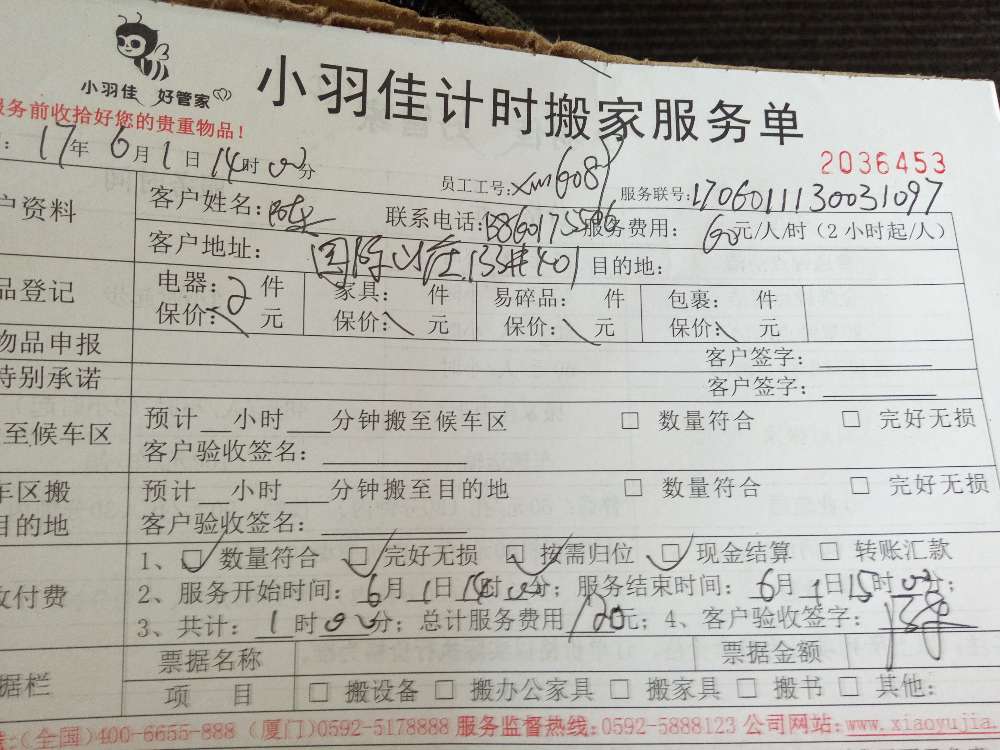 小羽佳 好管家
小羽佳计时搬家服务单
服务前收拾好您的贵重物品!
2036453
: 17年 6月 1日 14时 00分 员工工号: xm6087 服务联号: 1706011130031097
户资料 客户姓名: 联系电话: 服务费用: 60元/人/时(2小时起/人)
客户地址: 国际山庄133#401 目的地:
品登记 电器: 2 件 家具: 件 易碎品: 件 包裹: 件
保价: \ 元 保价: \ 元 保价: \ 元 保价: \ 元
物品申报 客户签字:
特别承诺 客户签字:
至候车区 预计__小时___分钟搬至候车区 □ 数量符合 □ 完好无损
客户验收签名:
车区搬 预计__小时___分钟搬至目的地 □ 数量符合 □ 完好无损
目的地 客户验收签名:
收付费 1、☑ 数量符合 ☑ 完好无损 ☑ 按需归位 ☑ 现金结算 □ 转账汇款
2、服务开始时间: 6月 1日 14时 00分; 服务结束时间: 6月 1日 15时 00分;
3、共计: 1时 00分; 总计服务费用 120元; 4、客户验收签字:
据栏 票据名称 票据金额
项 目 □ 搬设备 □ 搬办公家具 □ 搬家具 □ 搬书 □ 其他:
线:(全国)400-6655-888 (厦门)0592-5178888 服务监督热线:0592-5888123 公司网站:www.xiaoyujia.